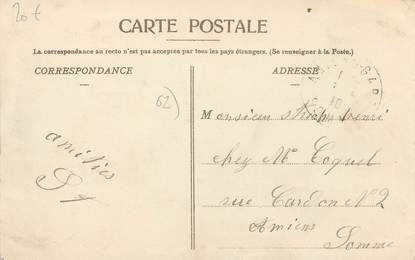 20 €
CARTE POSTALE
La correspondance au recto n'est pas acceptée par tous les pays étrangers. (Se renseigner à la Poste.)
CORRESPONDANCE
ADRESSE
62)
Monsieur Henri
chez Mr Coquel
rue Cardon N° 2
Amiens
Somme
amitiés